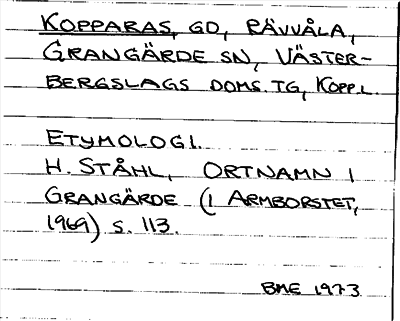 KOPPARAS, GD, RÄVVÅLA,
GRANGÄRDE SN, VÄSTER-
BERGSLAGS DOMS. TG, KOPP.L.
ETYMOLOGI.
H. STÅHL, ORTNAMN I
GRANGÄRDE (I ARMBORSTET,
1969) S. 113.
BME 1973